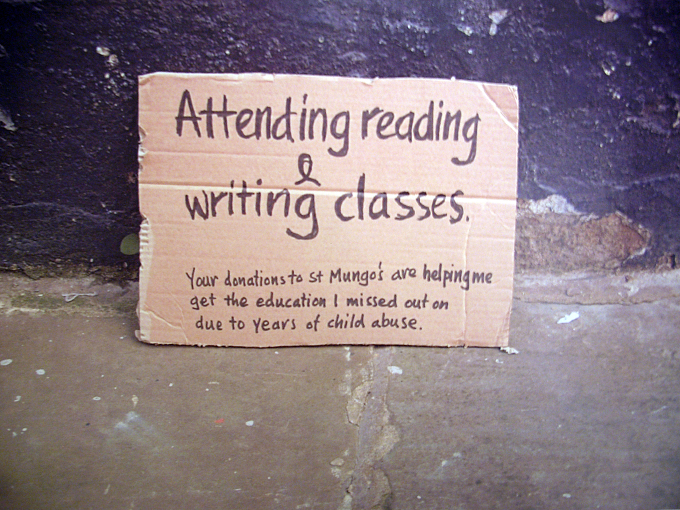 Attending reading
&
writing classes.
Your donations to St Mungo's are helping me
get the education I missed out on
due to years of child abuse.